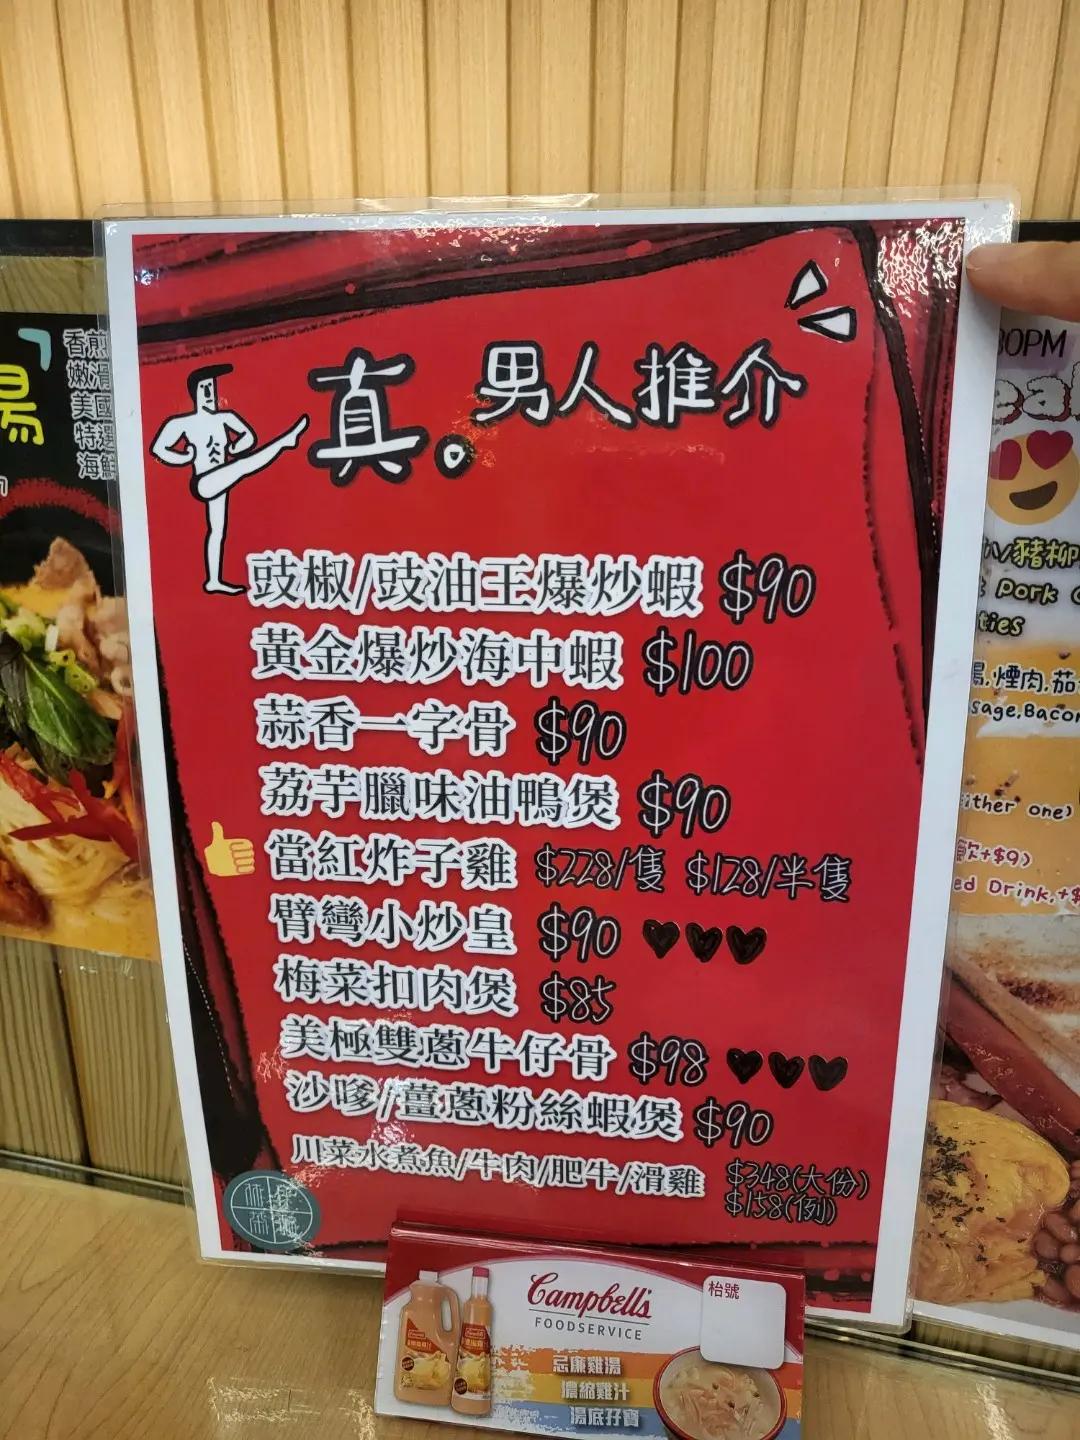 真。男人推介
豉椒/豉油王爆炒蝦 $90
黃金爆炒海中蝦 $100
蒜香一字骨 $90
荔芋臘味油鴨煲 $90
當紅炸子雞 $228/隻 $128/半隻
臂彎小炒皇 $90
梅菜扣肉煲 $85
美極雙蔥牛仔骨 $98
沙嗲/薑蔥粉絲蝦煲 $90
川菜水煮魚/牛肉/肥牛/滑雞 $348(大份)
$158(例)
Campbell's
FOODSERVICE
枱號
忌廉雞湯
濃縮雞汁
湯底孖寶
湯
香煎
嫩滑
美國
特選
海鮮
30PM
豬柳
pork
ties
煙肉,茄
sage,Bacon
ither one)
飲+$9)
ed Drink,+$